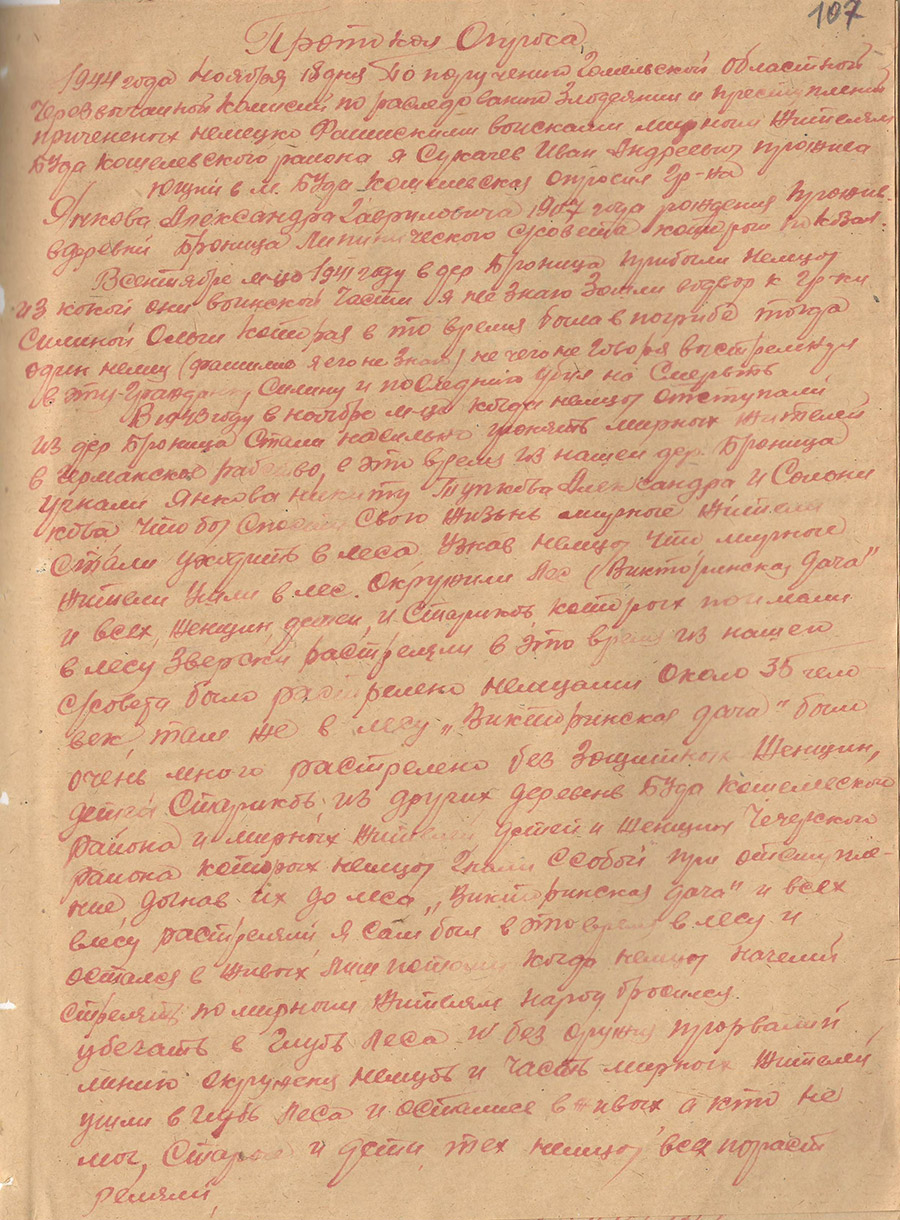 107
Протокол Опроса
1944 года Ноября 18 дня По поручению Гомельской Областной
Черезвычайной комисий по раследованию Злодеянии и преступлении
причененых немецко Фашискими воисками мирным Жителям
БУда Кошелевского района я Сукачев Иван Андреевич прожива
ющий в м. БУда Кошелевская опросил Гр-на
Янкова Александра Гавриловича 1907 года рождения прожив.
в деревни Броница Липиничского с/совета который показал
В сентябре м-це 1941 году в дер Броница прибыли немцы
из какой они воинской части я не знаю Зашли во двор к гр-ки
Силиной Ольги которая в то время была в погрибе тогда
один немец (фамилию я его не Знаю) не чего не говоря выстрелинул
в эту гражданку Силину и последнию убил на Смерьть
В 1943 году в ноябре м-це когда немцы отступали
из дер Броница Стали насильно угонять мирных Жителей
в Германское рабство, в это время из нашей дер. Броница
угнали Янкова Никиту Тупкова Александра и Солони
кова чтобы Спасти Свою Жизьнь мирные Жители
Стали уходить в леса Узнав немцы что мирные
Жители Ушли в лес. Окружили Лес (Викторинская дача"
и всех, Женщин детей, и Стариков которых поимали
в лесу Зверски растреляли в это время из нашего
с/совета было растрелено немцами около 35 чело
век, там же в лесу „Викторинская дача" было
очень много растрелено без Зощитных Женщин,
детей Стариков из других деревень БУда Кошелевского
района и мирных Жителей детей и Женщин Чечерского
района которых немцы Гнали с собой при отступле-
ние, догнав их до леса „Викторинская дача" и всех
в лесу растреляли я сам был в это время в лесу и
остался в живых лиш потому когда немцы начели
стрелять по мирным Жителям народ бросился
убегать в Глубь Леса и без оружия прорвали
линию окружения немцев и часть мирных Жителей
ушли в глубь Леса и осталисе в живых а кто не
мог, Старые и дети тех немцы всех пораст
реляли